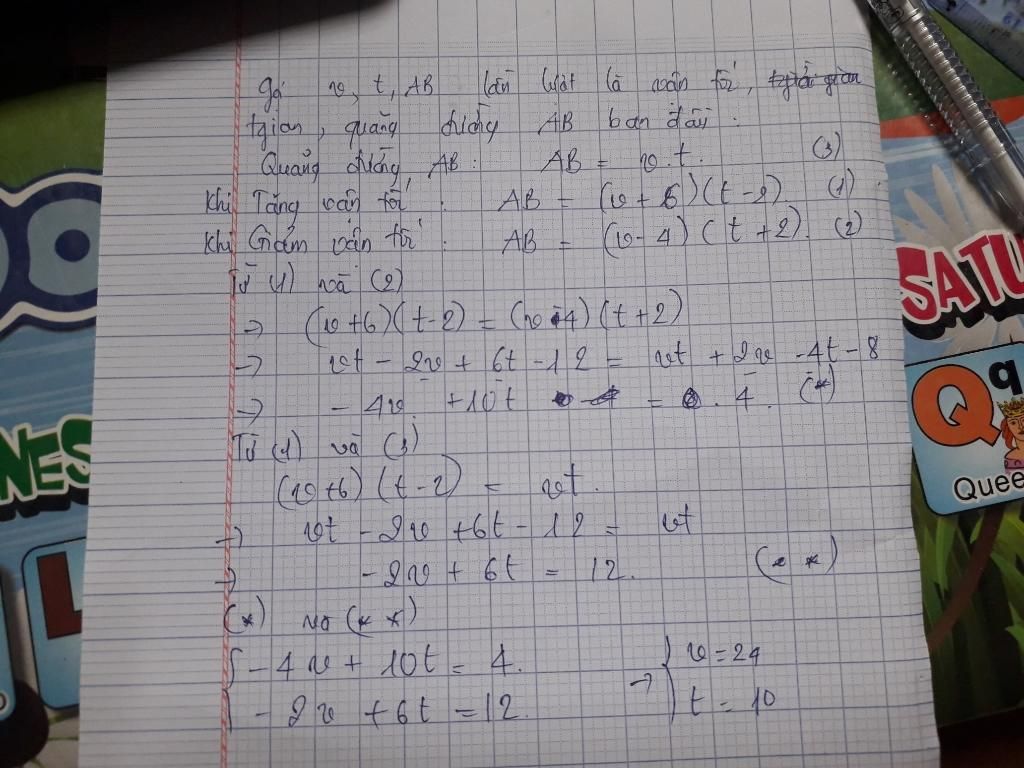 Gọi v, t, AB lần lượt là vận tốc,
tgian, quãng đường AB ban đầu:
Quãng đường AB: AB = v.t. (3)
Khi Tăng vận tốc: AB = (v + 6)(t - 2) (1)
Khi Giảm vận tốc: AB = (v - 4)(t + 2). (2)
Từ (1) và (2)
→ (v+6)(t-2) = (v-4)(t+2)
→ vt - 2v + 6t - 12 = vt + 2v - 4t - 8
→ - 4v + 10t = 4. (*)
Từ (1) và (3)
(v+6)(t-2) = vt.
→ vt - 2v + 6t - 12 = vt
→ - 2v + 6t = 12. (**)
(*) và (**)
{ - 4v + 10t = 4. → { v = 24
- 2v + 6t = 12. t = 10
NES
L
SATU
Q q
Quee